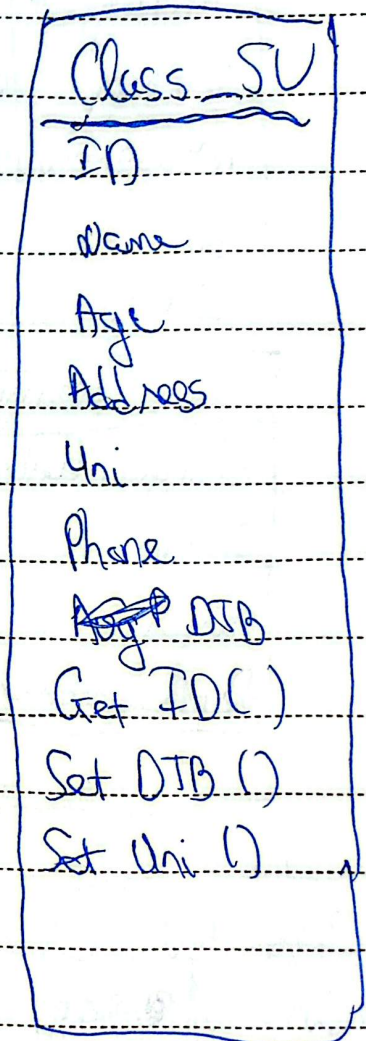 Class_SV
ID
Name
Age
Address
Uni
Phone
DTB
Get ID()
Set DTB ()
Set Uni ()